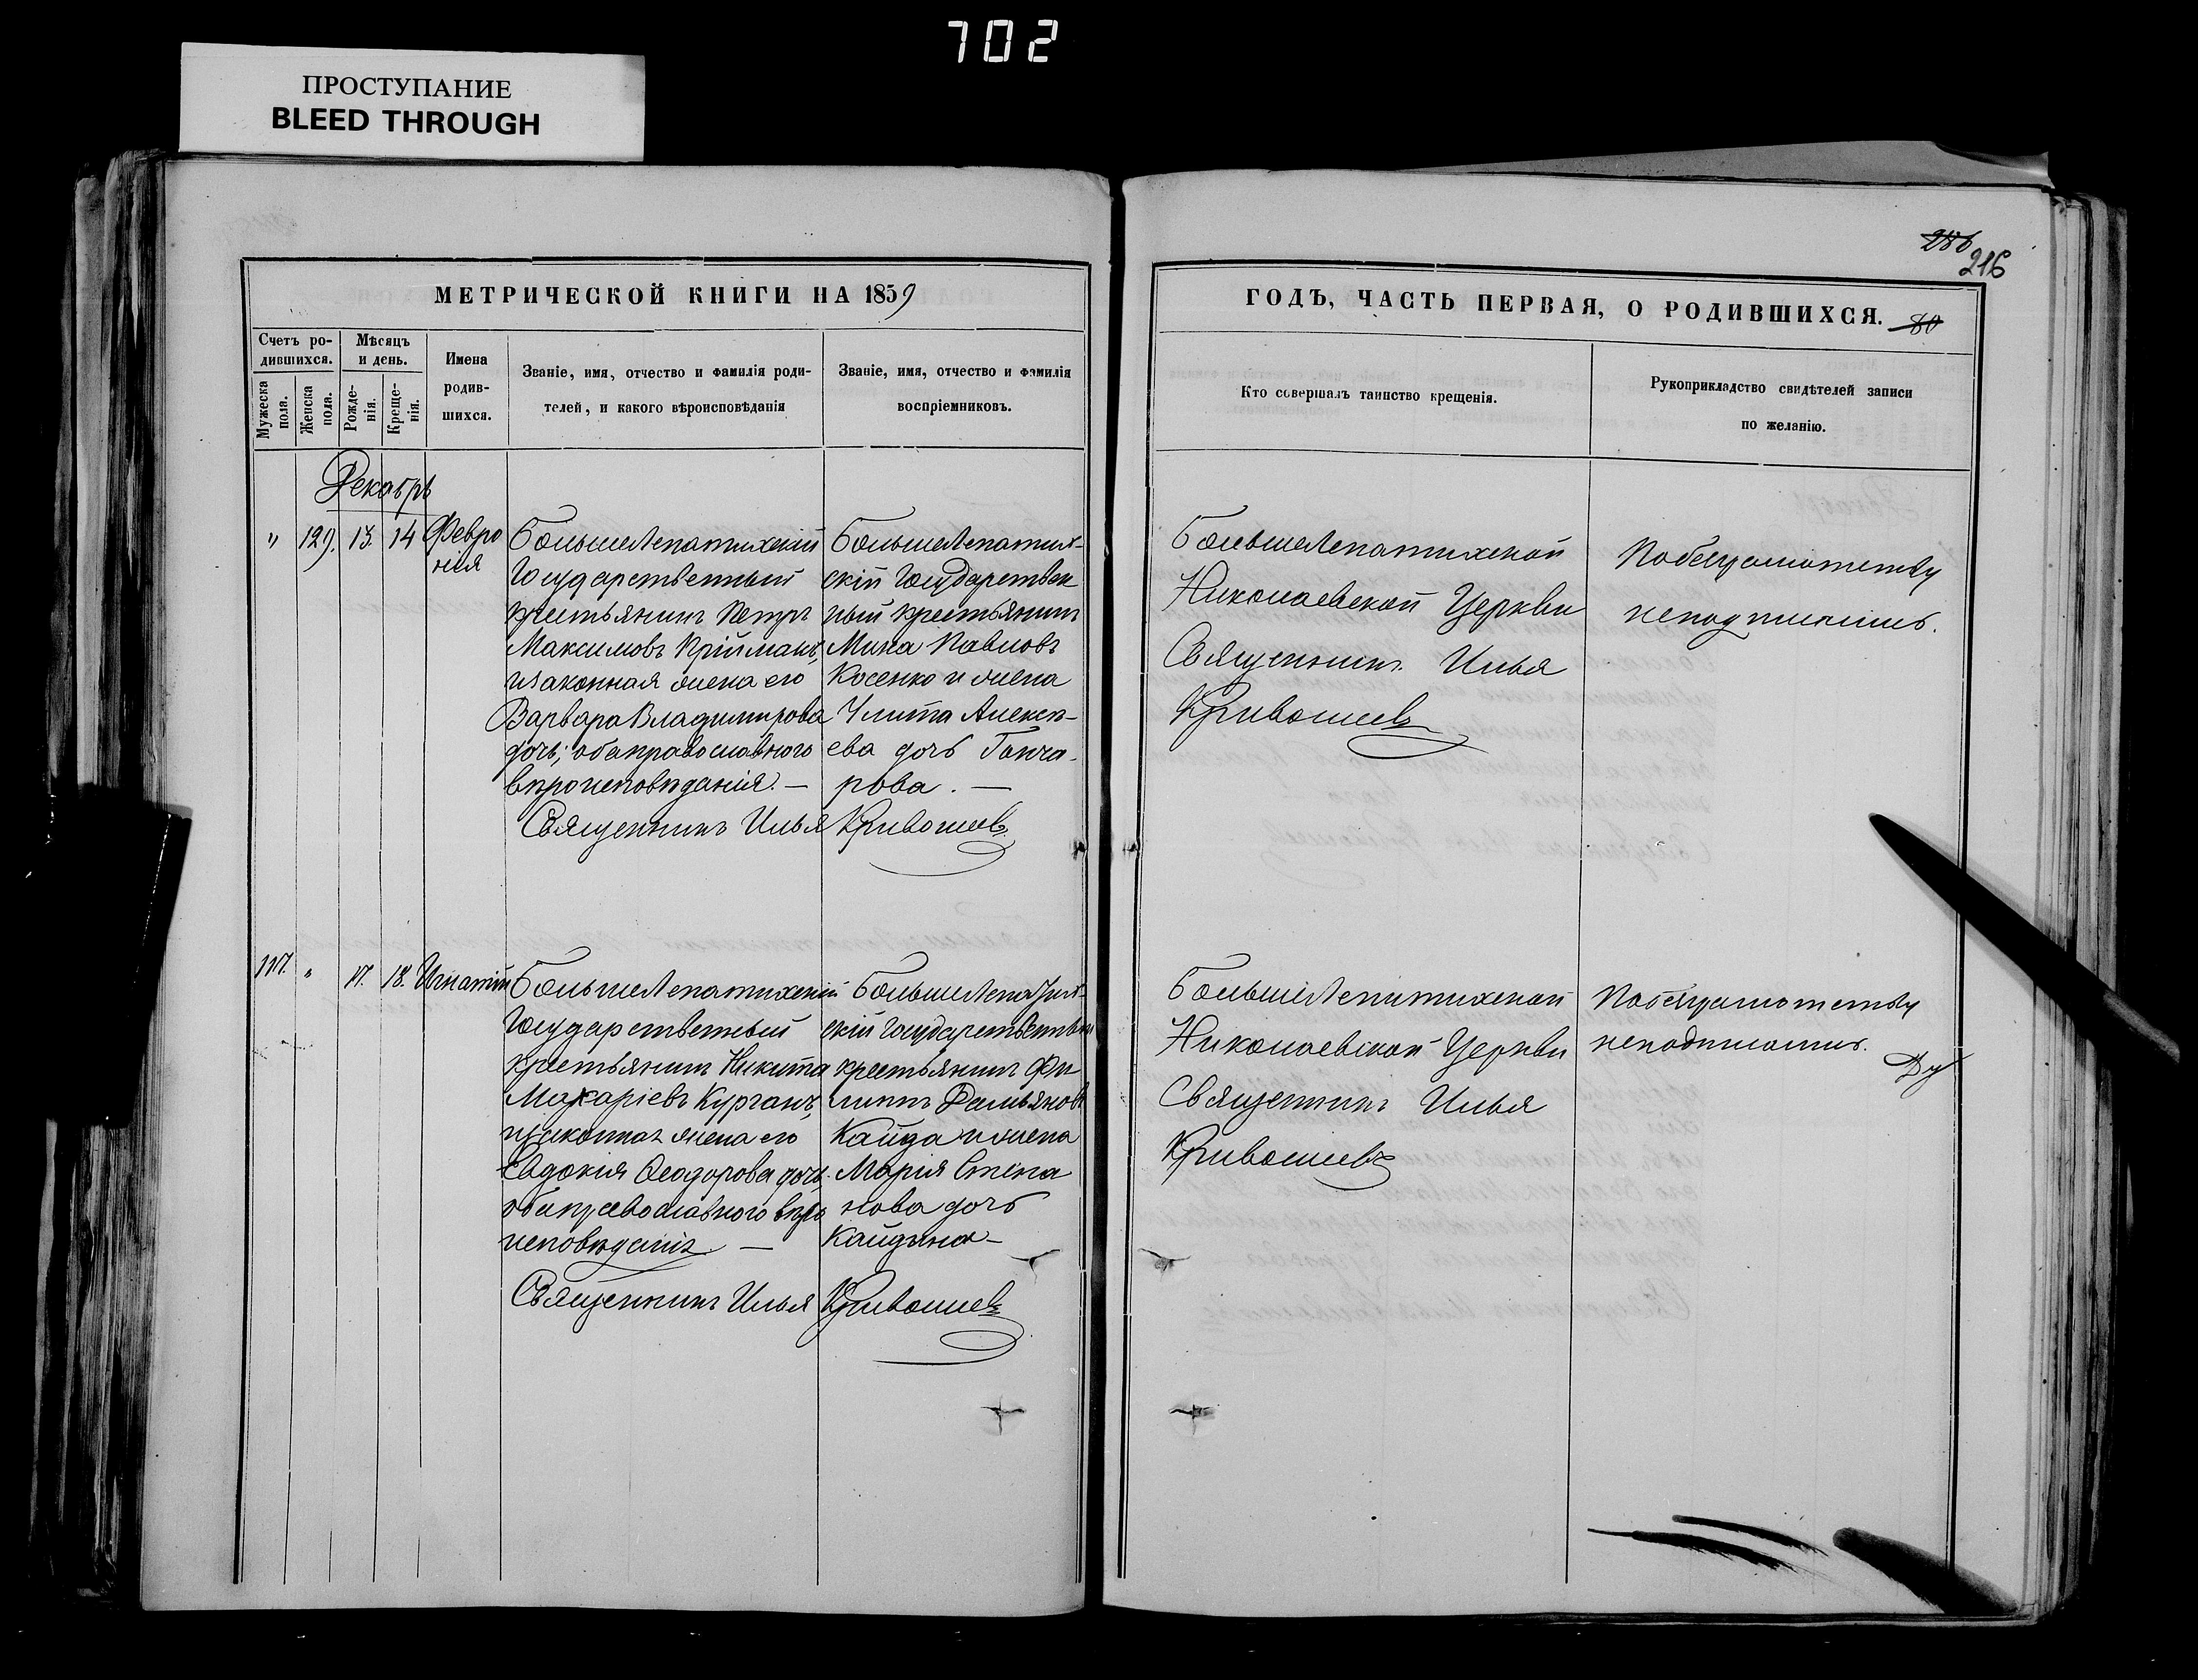 702
ПРОСТУПАНИЕ
BLEED THROUGH
286
216
МЕТРИЧЕСКОЙ КНИГИ НА 1859
ГОДЪ, ЧАСТЬ ПЕРВАЯ, О РОДИВШИХСЯ. 80
Счетъ ро-
дившихся.
Мужеска
пола.
Женска
пола.
Мѣсяцъ
и день.
Рожде-
нія.
Креще-
нія.
Имена
родив-
шихся.
Званіе, имя, отчество и фамилія роди-
телей, и какого вѣроисповѣданія
Званіе, имя, отчество и фамилія
воспріемниковъ.
Кто совершалъ таинство крещенія.
Рукоприкладство свидѣтелей записи
по желанію.
Декабрь
" 129. 13. 14 Февро
нія
БольшеЛепатихскій
Государственный
крестьянинъ Петръ
Максимовъ Прійманъ,
изаконная жена его
Варвара Владимирова
дочь; оба православного
вѣроисповѣданія. —
БольшеЛепатих-
скій Государствен
ный крестьянинъ
Мина Павловъ
Косенко и жена
Улита Алексѣ-
ева дочь Гонча-
рова. —
Священникъ Илья Кривошеевъ
БольшеЛепатихской
Николаевской Церкви
Священникъ Илья
Кривошеевъ
Побезграмотству
неподписались.
117. " 17. 18. Игнатій
БольшеЛепатихскій
Государственный
крестьянинъ Никита
Макаріевъ Курганъ,
изаконная жена его
Евдокія Феодорова дочь.
оба православного вѣро
исповѣданія. —
БольшеЛепатих-
скій Государственный
крестьянинъ Фи
липпъ Демьяновъ
Кайда и жена
Марія Степа
нова дочь
Кайдына —
Священникъ Илья Кривошеевъ
БольшеЛепатихской
Николаевской Церкви
Священникъ Илья
Кривошеевъ
Побезграмотству
неподписались.